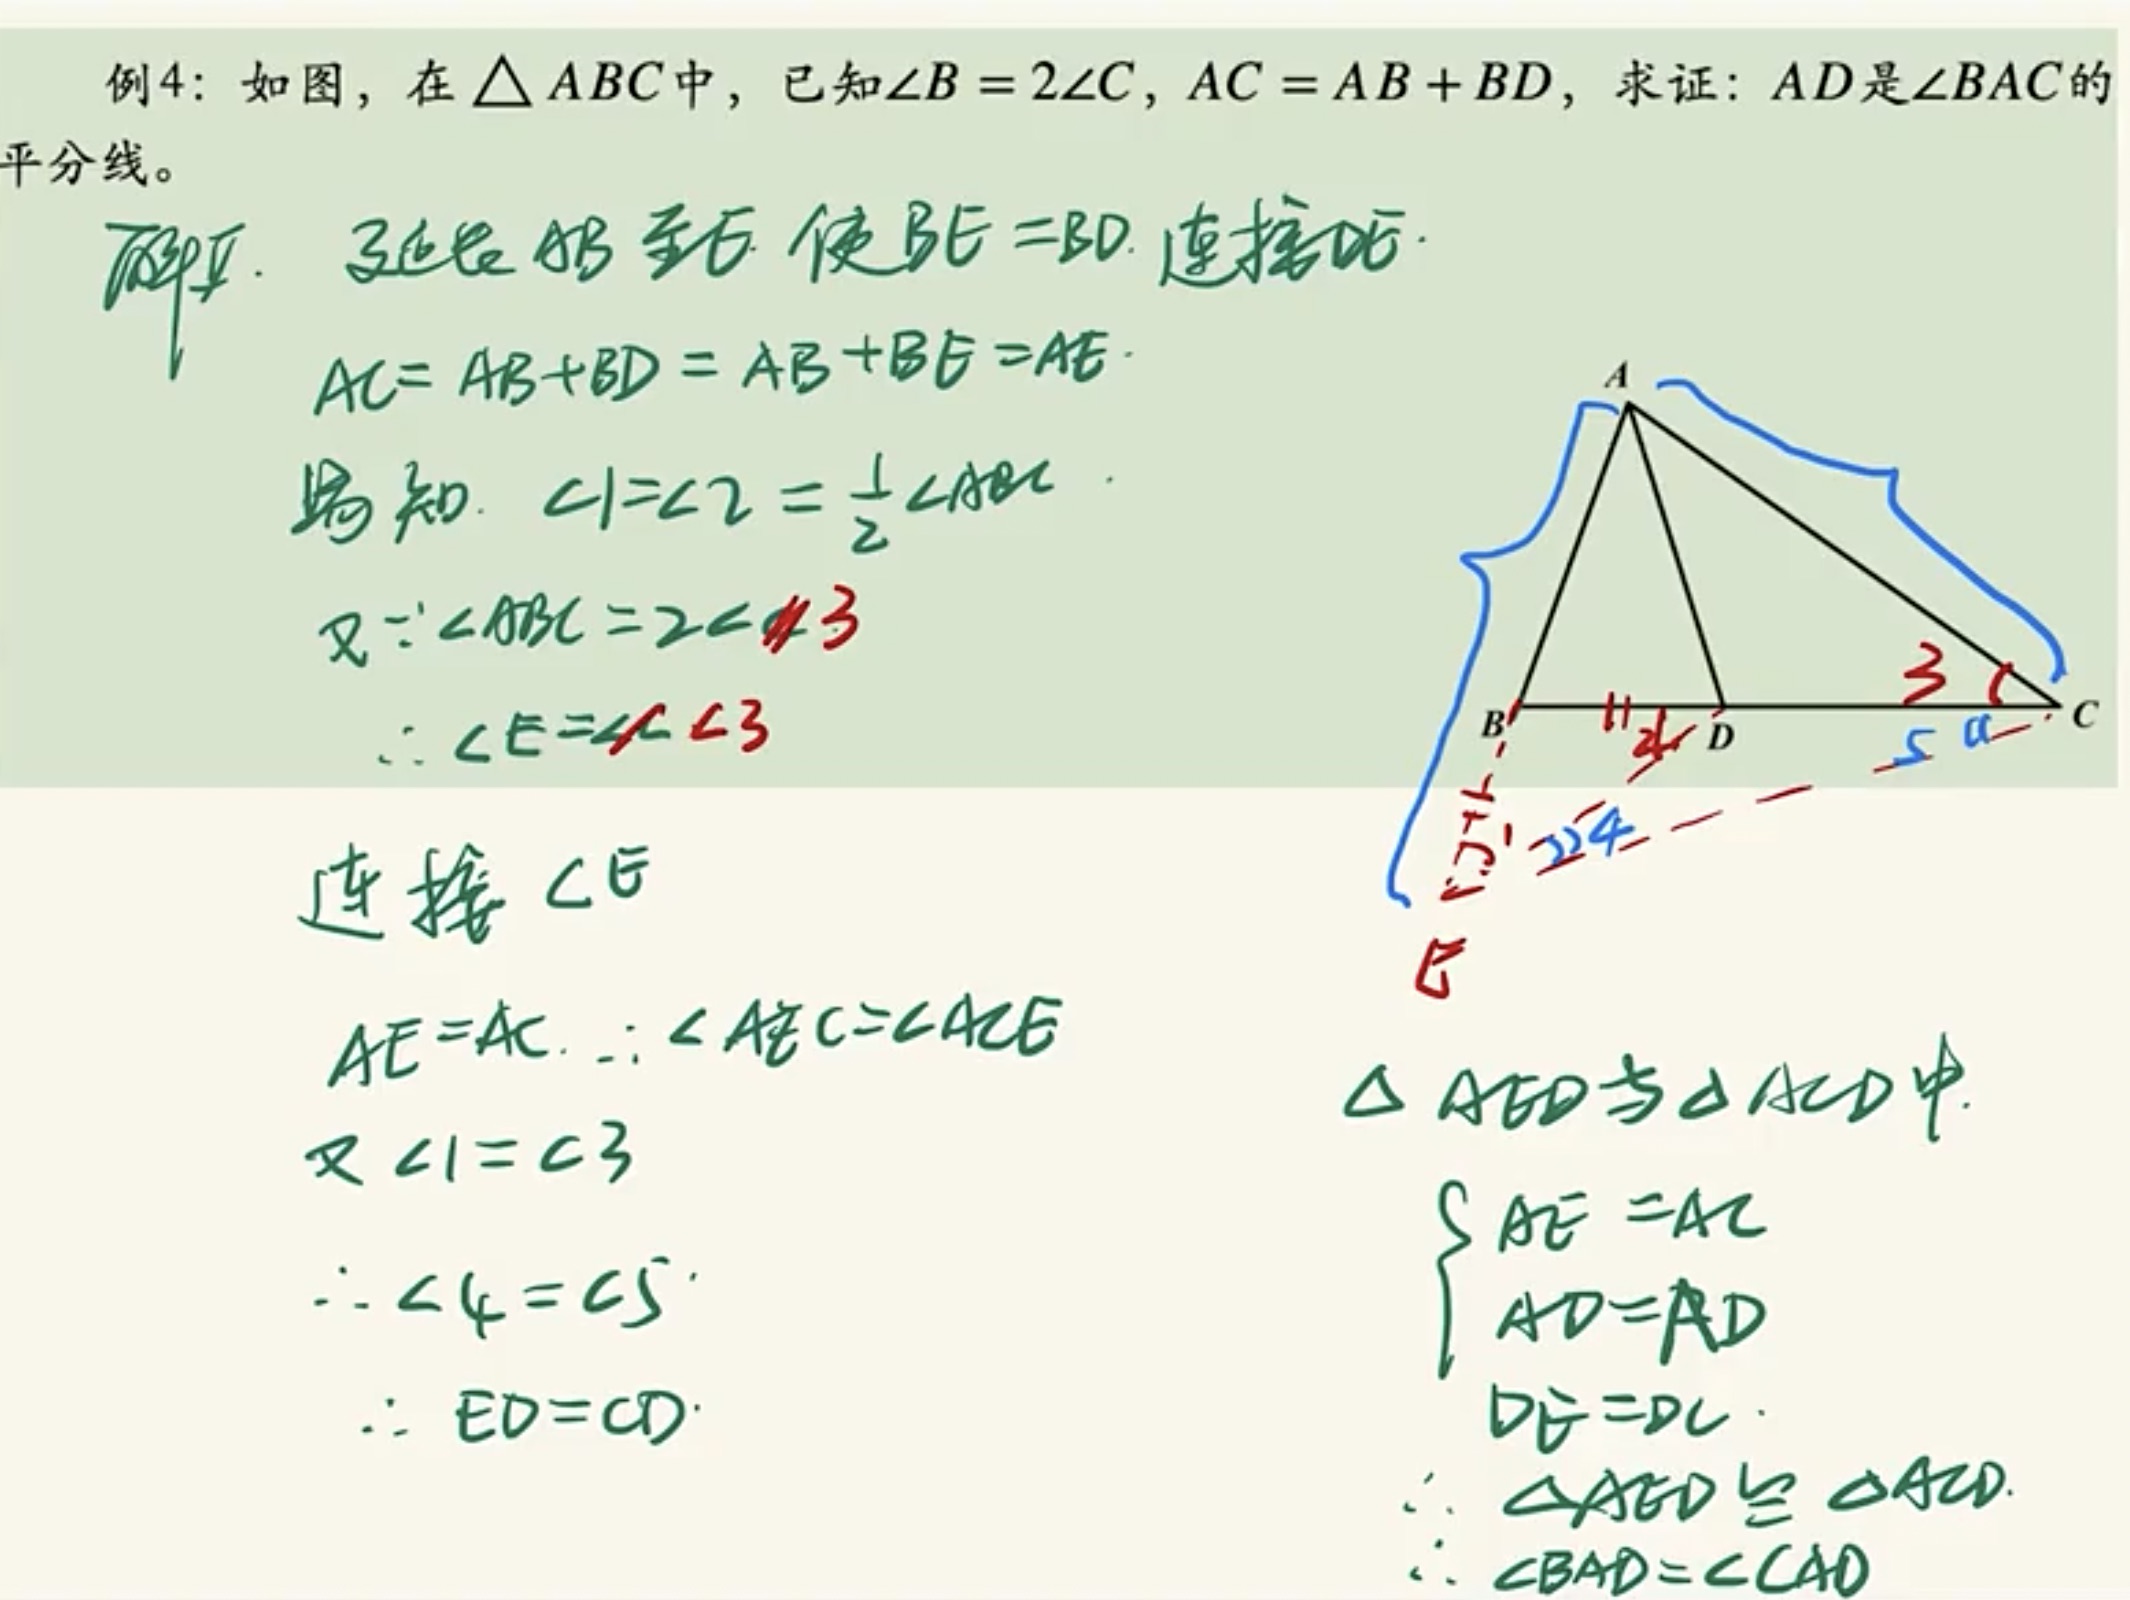 例4：如图，在△ABC中，已知∠B = 2∠C，AC = AB + BD，求证：AD是∠BAC的
平分线。
解I. 延长AB至E 使BE=BD. 连接DE.
AC=AB+BD=AB+BE=AE.
易知. ∠1=∠2=1/2∠ABC.
又∵∠ABC=2∠3
∴∠E=∠3
连接CE
AE=AC. ∴∠AEC=∠ACE
又∠1=∠3
∴∠4=∠5.
∴ED=CD.
A
B
D
C
3
2
5
1
4
E
△AED与△ACD中.
AE=AC
AD=AD
DE=DC.
∴△AED≌△ACD.
∴∠BAD=∠CAD